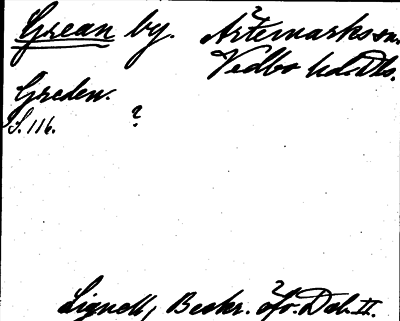 Grean by. Årtemarks sn.
Vedbo hd. Dls.
Greden.
S. 116. ?
Lignell, Beskr. öfv. Dal. II.